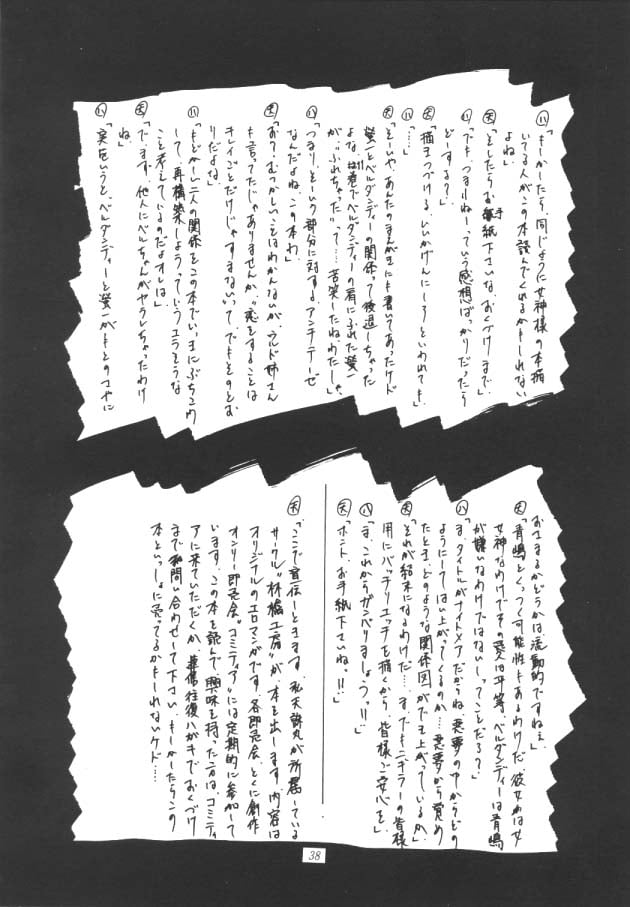 ㋩「もしかしたら、同じように女神様の本描
いてる人がこの本読んでくれるかもしれない
よね」
㋝「そしたらお手紙下さいな、おくづけまで」
㋩「でも、つまりねーっていう感想ばっかりだったら
どーする?」
㋝「描きつづける、いいかげんにしろといわれても」
㋩「…」
㋝「そーいやあんたのまんがにも書いてあったケド
螢一とベルダンディーの関係って後退しちゃった
よな、11巻でベルダンディーの肩にふれた螢一
が、"ふれちゃった"って…苦笑したねわたしゃ」
㋩「つまり、そーいう部分に対するアンチテーゼ
なんだよね、この本わ」
㋝「おう、むつかしいことはわかんないが、ウルド姉さん
も言ってたじゃありませんか、"恋をすることは
キレイごとだけじゃすまない"って、でもそのとお
りだよな」
㋩「もどかしい二人の関係をこの本でいっきにぶちこわ
して、再構築しようっていうエラそうな
こと考えているのだよオレは」
㋝「でます、他人にベルちゃんがヤラレちゃったわけ
ね」
㋩「実をいうと、ベルダンディーと螢一がもとのさやに
おさまるかどうかは流動的ですねえ」
㋝「青嶋とくっつく可能性もあるわけだ、彼女わは女
女神なわけでその愛は平等、ベルダンディーは青嶋
が嫌いなわけではないしってことだろ?」
㋩「ま、タイトルがナイトメアだからね、悪夢の中からどの
ようにしてはい上がってくるのか…悪夢から覚め
たとき、どのような関係図ができ上がっているか、
それが結末になるわけだ…までもニギラーの皆様
用にバッチリエッチを描くから、皆様ご安心を」
㋩「ま、これからガンバリましょうっ!!」
㋝「ホント、お手紙下さいね!!」
㋝「ここで宣伝しときます、私天誅丸が所属している
サークル"林檎工房"が本を出します、内容は
オリジナルのエロマンガです、各即売会、とくに創作
オンリー即売会"コミティア"には定期的に参加して
います、この本を読んで興味を持った方は、コミティ
アに来ていただくか、葉書往復ハガキでおくづけ
まで御問い合わせして下さい、もしかしたらこの
本といっしょに売ってるかもしれないケド…
38